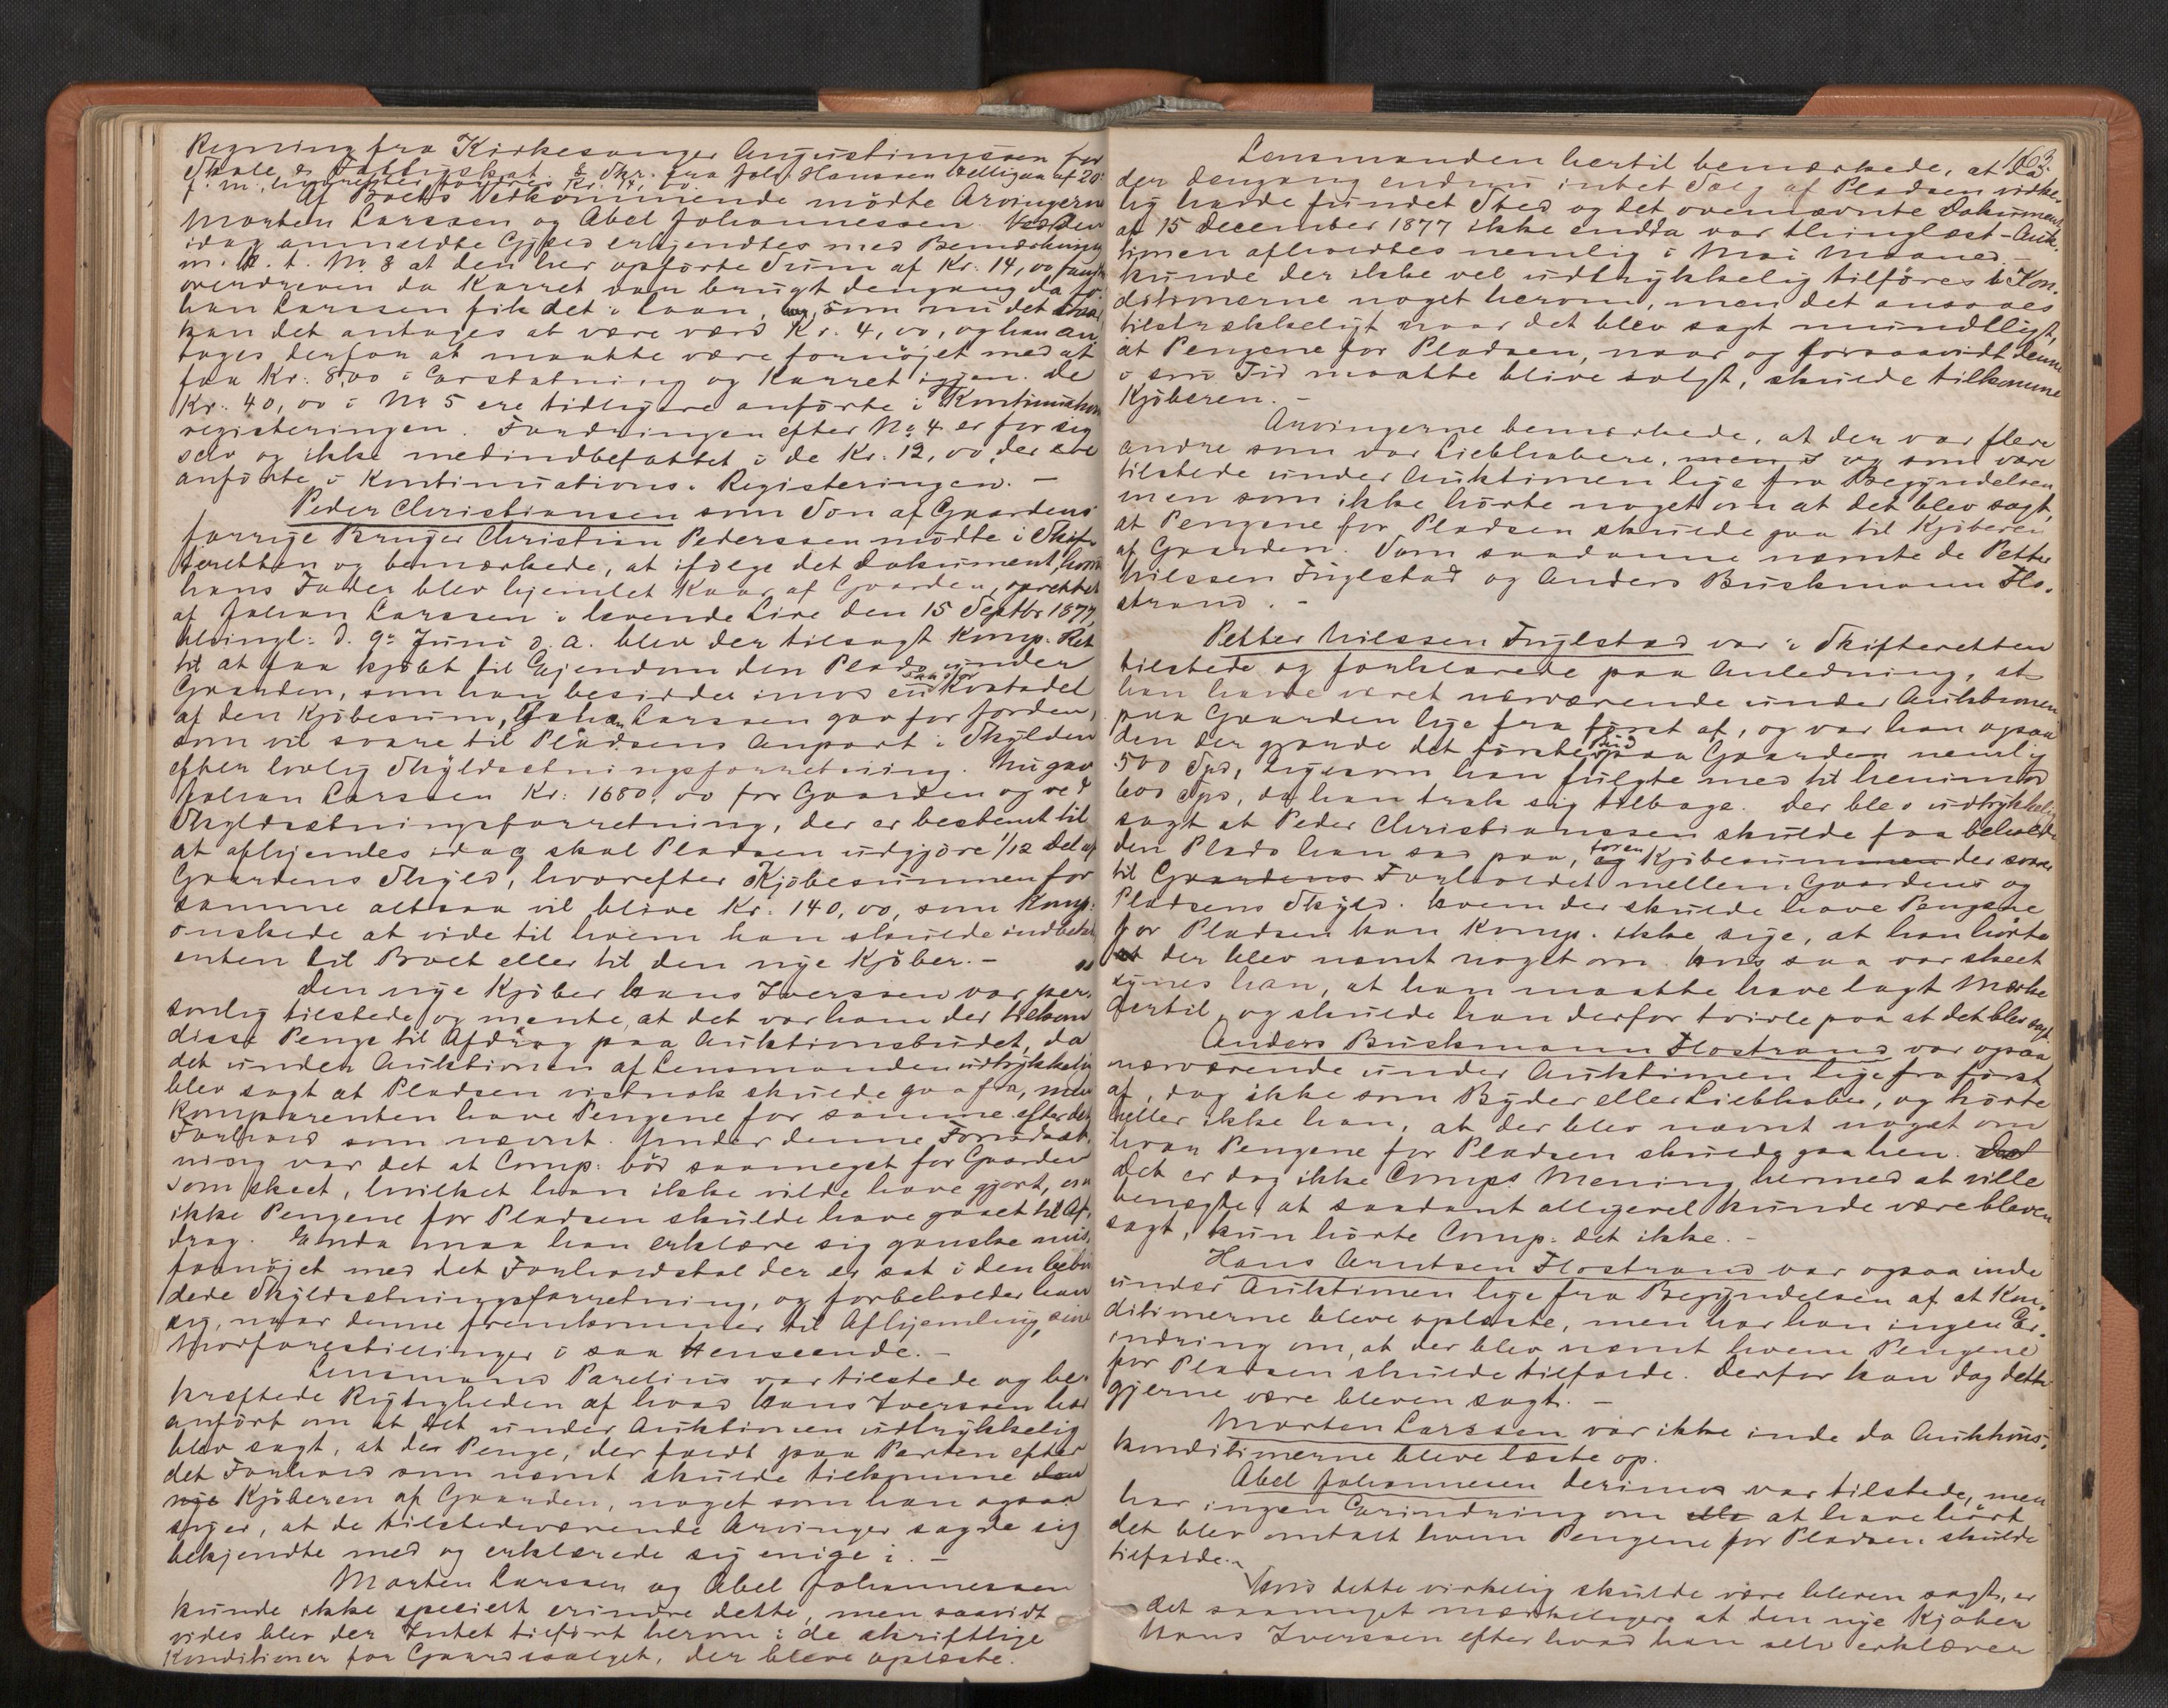 Regning fra Kirkesanger Augustinussen for
Skole & Fattigskat. 6 Skr. fra Joh. Hanssen Velligan af 20
f. M., hvorefter fordres Kr. 14,00.
Af Boets Vedkommende mödte Arvingerne
Morten Larssen og Abel Johannessen. Ved den
idag anmeldte Gjæld erkjendtes med Bemærkning
m. H. t. No 8 at den her opförte Sum af Kr. 14,00 fandtes
overdreven da Karret var brugt dengang da Jo-
han Larssen fik det i Laan, som nu det
kan det antages at være værd Kr. 4,00, og han an-
tages derfor at maatte være fornöjet med at
faa Kr. 8,00 i Erstatning og Karret igjen. De
Kr. 40,00 i No 5 ere tidligere anförte i Kontinuations
registeringen. Fordringen efter No 4 er for sig
selv og ikke medindbefattet i de Kr. 12,00, der ere
anförte i Kontinuations-Registeringen. —
Peder Christiansen som Sön af Gaardens
forrige Bruger Christian Pederssen mödte i Skif-
teretten og bemærkede, at ifölge det Dokument, hvori
hans Fader blev hjemlet Kaar af Gaarden, oprettet
af Johan Larssen i levende Live den 15 Septbr 1877,
thingl: d. 9de Juni d. A. blev der tilsagt Komp. Ret
til at faa kjöbt til Ejendom den Plads under
Gaarden, som han besidder imod en saastor Kvotadel
af den Kjöbesum, Johan Larssen gav for Jorden,
som vil svare til Pladsens Anpart i Skylden
efter lovlig Skyldsetningsforretning. Nu gav
Johan Larssen Kr: 1680,00 for Gaarden og ved
Skyldsætningsforretning, der er bestemt til
at afhjemles idag skal Pladsen udgjöre 1/12 Del af
Gaardens Skyld, hvorefter Kjöbesummen for
samme altsaa vil blive Kr: 140,00, som Komp.
önskede at vide til hvem han skulde indbetale
enten til Boet eller til den nye Kjöber. —
Den nye Kjöber Hans Iverssen var per-
sonlig tilstede og mente, at det var ham der tilkom
disse Penge til Afdrag paa Auktionsbudet, da
det under Auktionen af Lensmanden udtrykkelig
blev sagt at Pladsen vistnok skulde gaa fra, men
Komparenten have Pengene for samme efter det
Forhold som nævnt. Under denne Forudsæt-
ning var det at Comp: böd saameget for Gaarden
som skeet, hvilket han ikke vilde have gjort, om
ikke Pengene for Pladsen skulde have gaaet til Af-
drag. Endda maa han erklære sig ganske mis-
fornöjet med det Forholdstal der er sat i den
Skyldsætningsforretning, og forbeholder han
sig, naar denne fremkommer til Afhjemling, sine
Modforestillinger i saa Henseende. —
Lensmand Parelius var tilstede og be-
kræftede Rigtigheden af hvad Hans Iverssen har
anfört om at det under Auktionen udtrykkelig
blev sagt, at de Penge, der faldt paa Parten efter
det Forhold som nævnt skulde tilkomme den
nye Kjöberen af Gaarden, noget som han ogsaa
siger, at de tilstedeværende Arvinger sagde sig
bekjendte med og erklærede sig enige i. —
Morten Larssen og Abel Johannessen
kunde ikke specielt erindre dette, men saavidt
vides blev der Intet tilfört herom i de skriftlige
Konditioner for Gaardssalget, der bleve oplæste.
163.
Lensmanden hertil bemærkede, at da
der dengang endnu intet Salg af Pladsen virke-
lig havde fundet Sted og det ovennævnte Dokument
af 15 December 1877 ikke endda var thinglæst – Auk-
tionen afholdtes nemlig i Mai Maaned –
kunde der ikke vel udtrykkelig tilföres Kon-
ditionerne noget herom, men det ansaaes
tilstrækkeligt naar det blev sagt mundtligt,
at Pengene for Pladsen, naar og forsaavidt denne
i sin Tid maatte blive solgt, skulde tilkomme
Kjöberen. —
Arvingerne bemærkede, at der var flere
andre som var Liebhabere, men i og som vare
tilstede under Auktionen lige fra Begyndelsen
men som ikke hörte noget om at det blev sagt,
at Pengene for Pladsen skulde gaa til Kjöberen
af Gaarden. Som saadanne nævnte de Petter
Nilssen Fuglstad og Anders Buskmann Flo-
strand. —
Petter Nilssen Fuglstad var i Skifteretten
tilstede og forklarede paa Anledning, at
han havde været nærværende under Auktionen
paa Gaarden lige fra först af, og var han ogsaa
den der gjorde det förste Bud paa Gaarden nemlig
500 Spd, ligesom han fulgte med til henimod
600 Spd, da han trak sig tilbage. Der blev udtrykkelig
sagt at Peder Christianssen skulde faa beholde
den Plads han sad paa, for en og Kjöbesummen der svarer
til Gaardens Forholdet mellem Gaardens og
Pladsens Skyld. Hvem der skulde have Pengene
for Pladsen kan Komp. ikke sige, at han hörte
at der blev nævnt noget om. Hvis saa var skeet
synes han, at han maatte have lagt Mærke
dertil, og skulde han derfor tvivle paa at det blev sagt.
Anders Buskmann Flostrand var ogsaa
nærværende under Auktionen lige fra först
af, dog ikke som Byder eller Liebhaber, og hörte
heller ikke han, at der blev nævnt noget om
hvor Pengene for Pladsen skulde gaa hen. Det
Det er dog ikke Comps Mening hermed at ville
benægte, at saadant alligevel kunde være bleven
sagt, kun hörte Comp: det ikke. —
Hans Arntsen Flostrand var ogsaa inde
under Auktionen lige fra Begyndelsen af at Kon-
ditionerne bleve oplæste, men har han ingen Er-
indring om, at der blev nævnt hvem Pengene
for Pladsen skulde tilfalde. Derfor kan dog dette
gjerne være bleven sagt. —
Morten Larssen var ikke inde da Auktions-
konditionerne bleve læste op.
Abel Johannesen derimod var tilstede, men
har ingen Erindring om at have hört
det blev omtalt hvem Pengene for Pladsen skulde
tilfalde. —
Hvis dette virkelig skulde være bleven sagt, er
det saameget mærkeligere at den nye Kjöber
Hans Iverssen efter hvad han selv erklærer